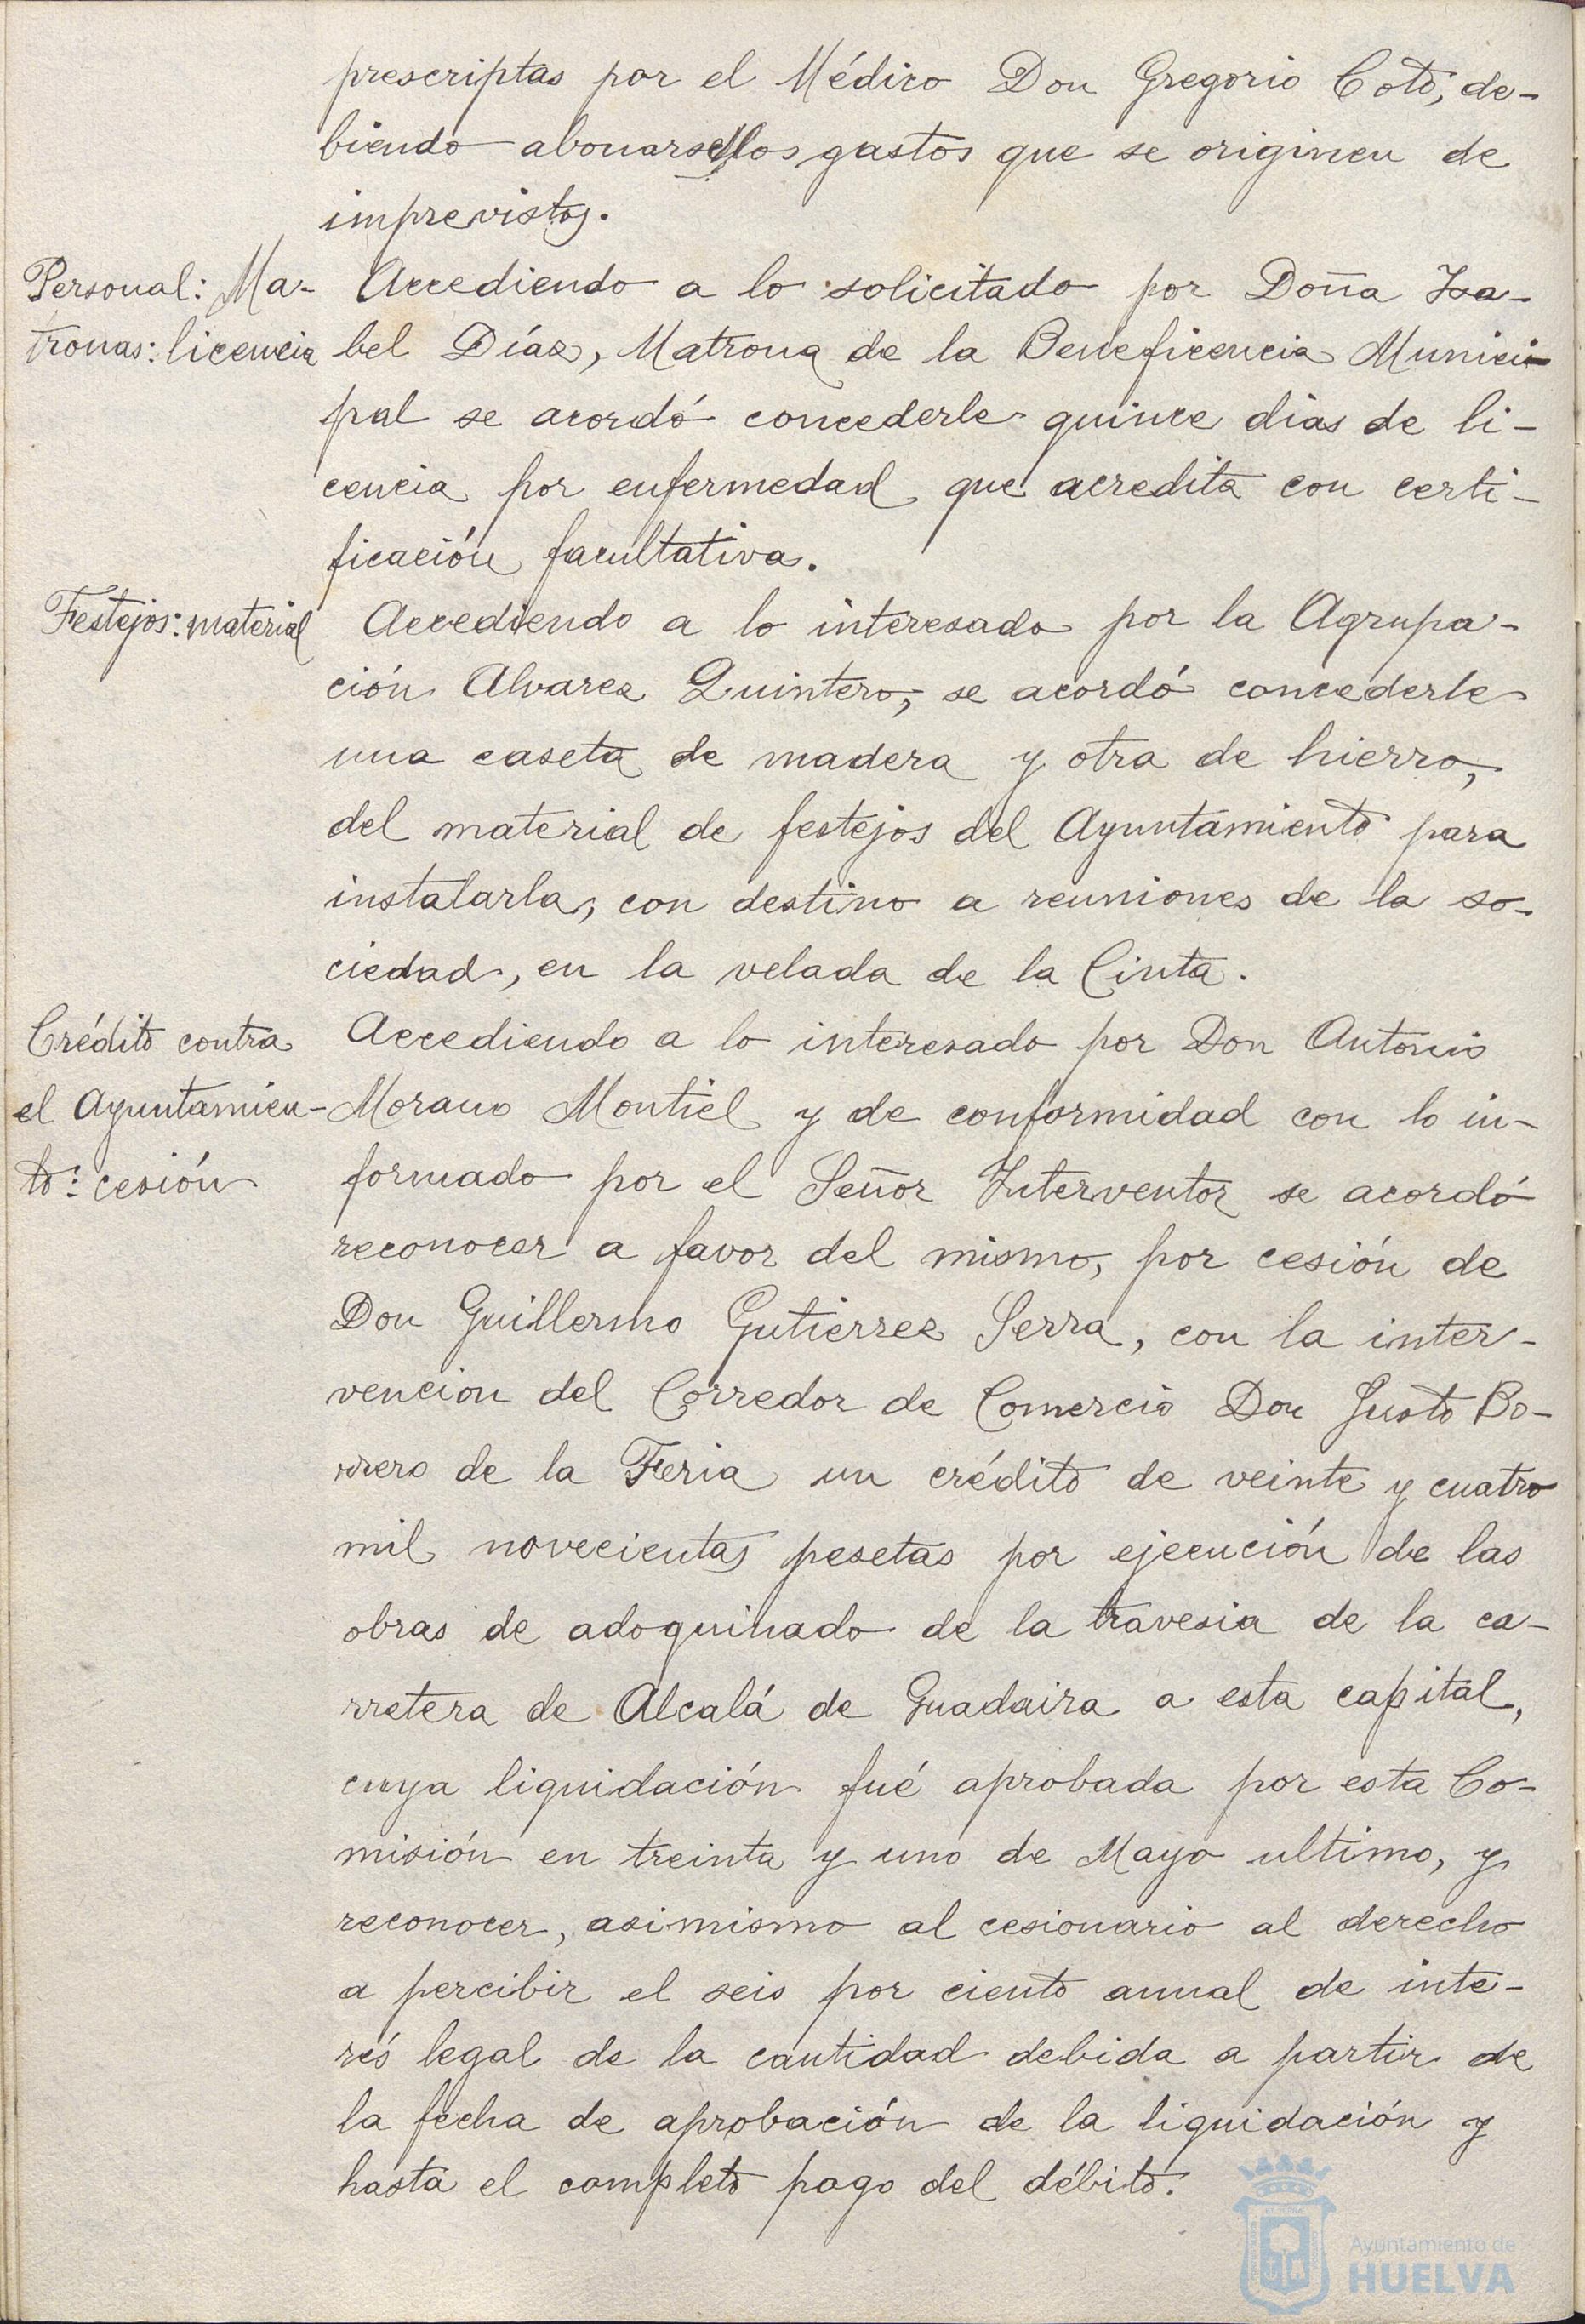 prescriptas por el Médico Don Gregorio Coto, de-
biendo abonarse los gastos que se originen de
imprevistos.
Personal: Ma-
tronas: licencia
Accediendo a lo solicitado por Doña Isa-
bel Díaz, Matrona de la Beneficencia Munici-
pal se acordó concederle quince dias de li-
cencia por enfermedad que acredita con certi-
ficación facultativa.
Festejos: material
Accediendo a lo interesado por la Agrupa-
ción Alvarez Quintero, se acordó concederle
una caseta de madera y otra de hierro,
del material de festejos del Ayuntamiento para
instalarla, con destino a reuniones de la so-
ciedad, en la velada de la Cinta.
Crédito contra
el Ayuntamien-
to: cesión
Accediendo a lo interesado por Don Antonio
Morano Montiel y de conformidad con lo in-
formado por el Señor Interventor se acordó
reconocer a favor del mismo, por cesión de
Don Guillermo Gutierrez Serra, con la inter-
vencion del Corredor de Comercio Don Justo Bo-
rrero de la Feria un crédito de veinte y cuatro
mil novecientas pesetas por ejecución de las
obras de adoquinado de la travesia de la ca-
rretera de Alcalá de Guadaira a esta capital,
cuya liquidación fué aprobada por esta Co-
misión en treinta y uno de Mayo ultimo, y
reconocer, asimismo al cesionario al derecho
a percibir el seis por ciento anual de inte-
rés legal de la cantidad debida a partir de
la fecha de aprobación de la liquidación y
hasta el completo pago del débito.
Ayuntamiento de
HUELVA